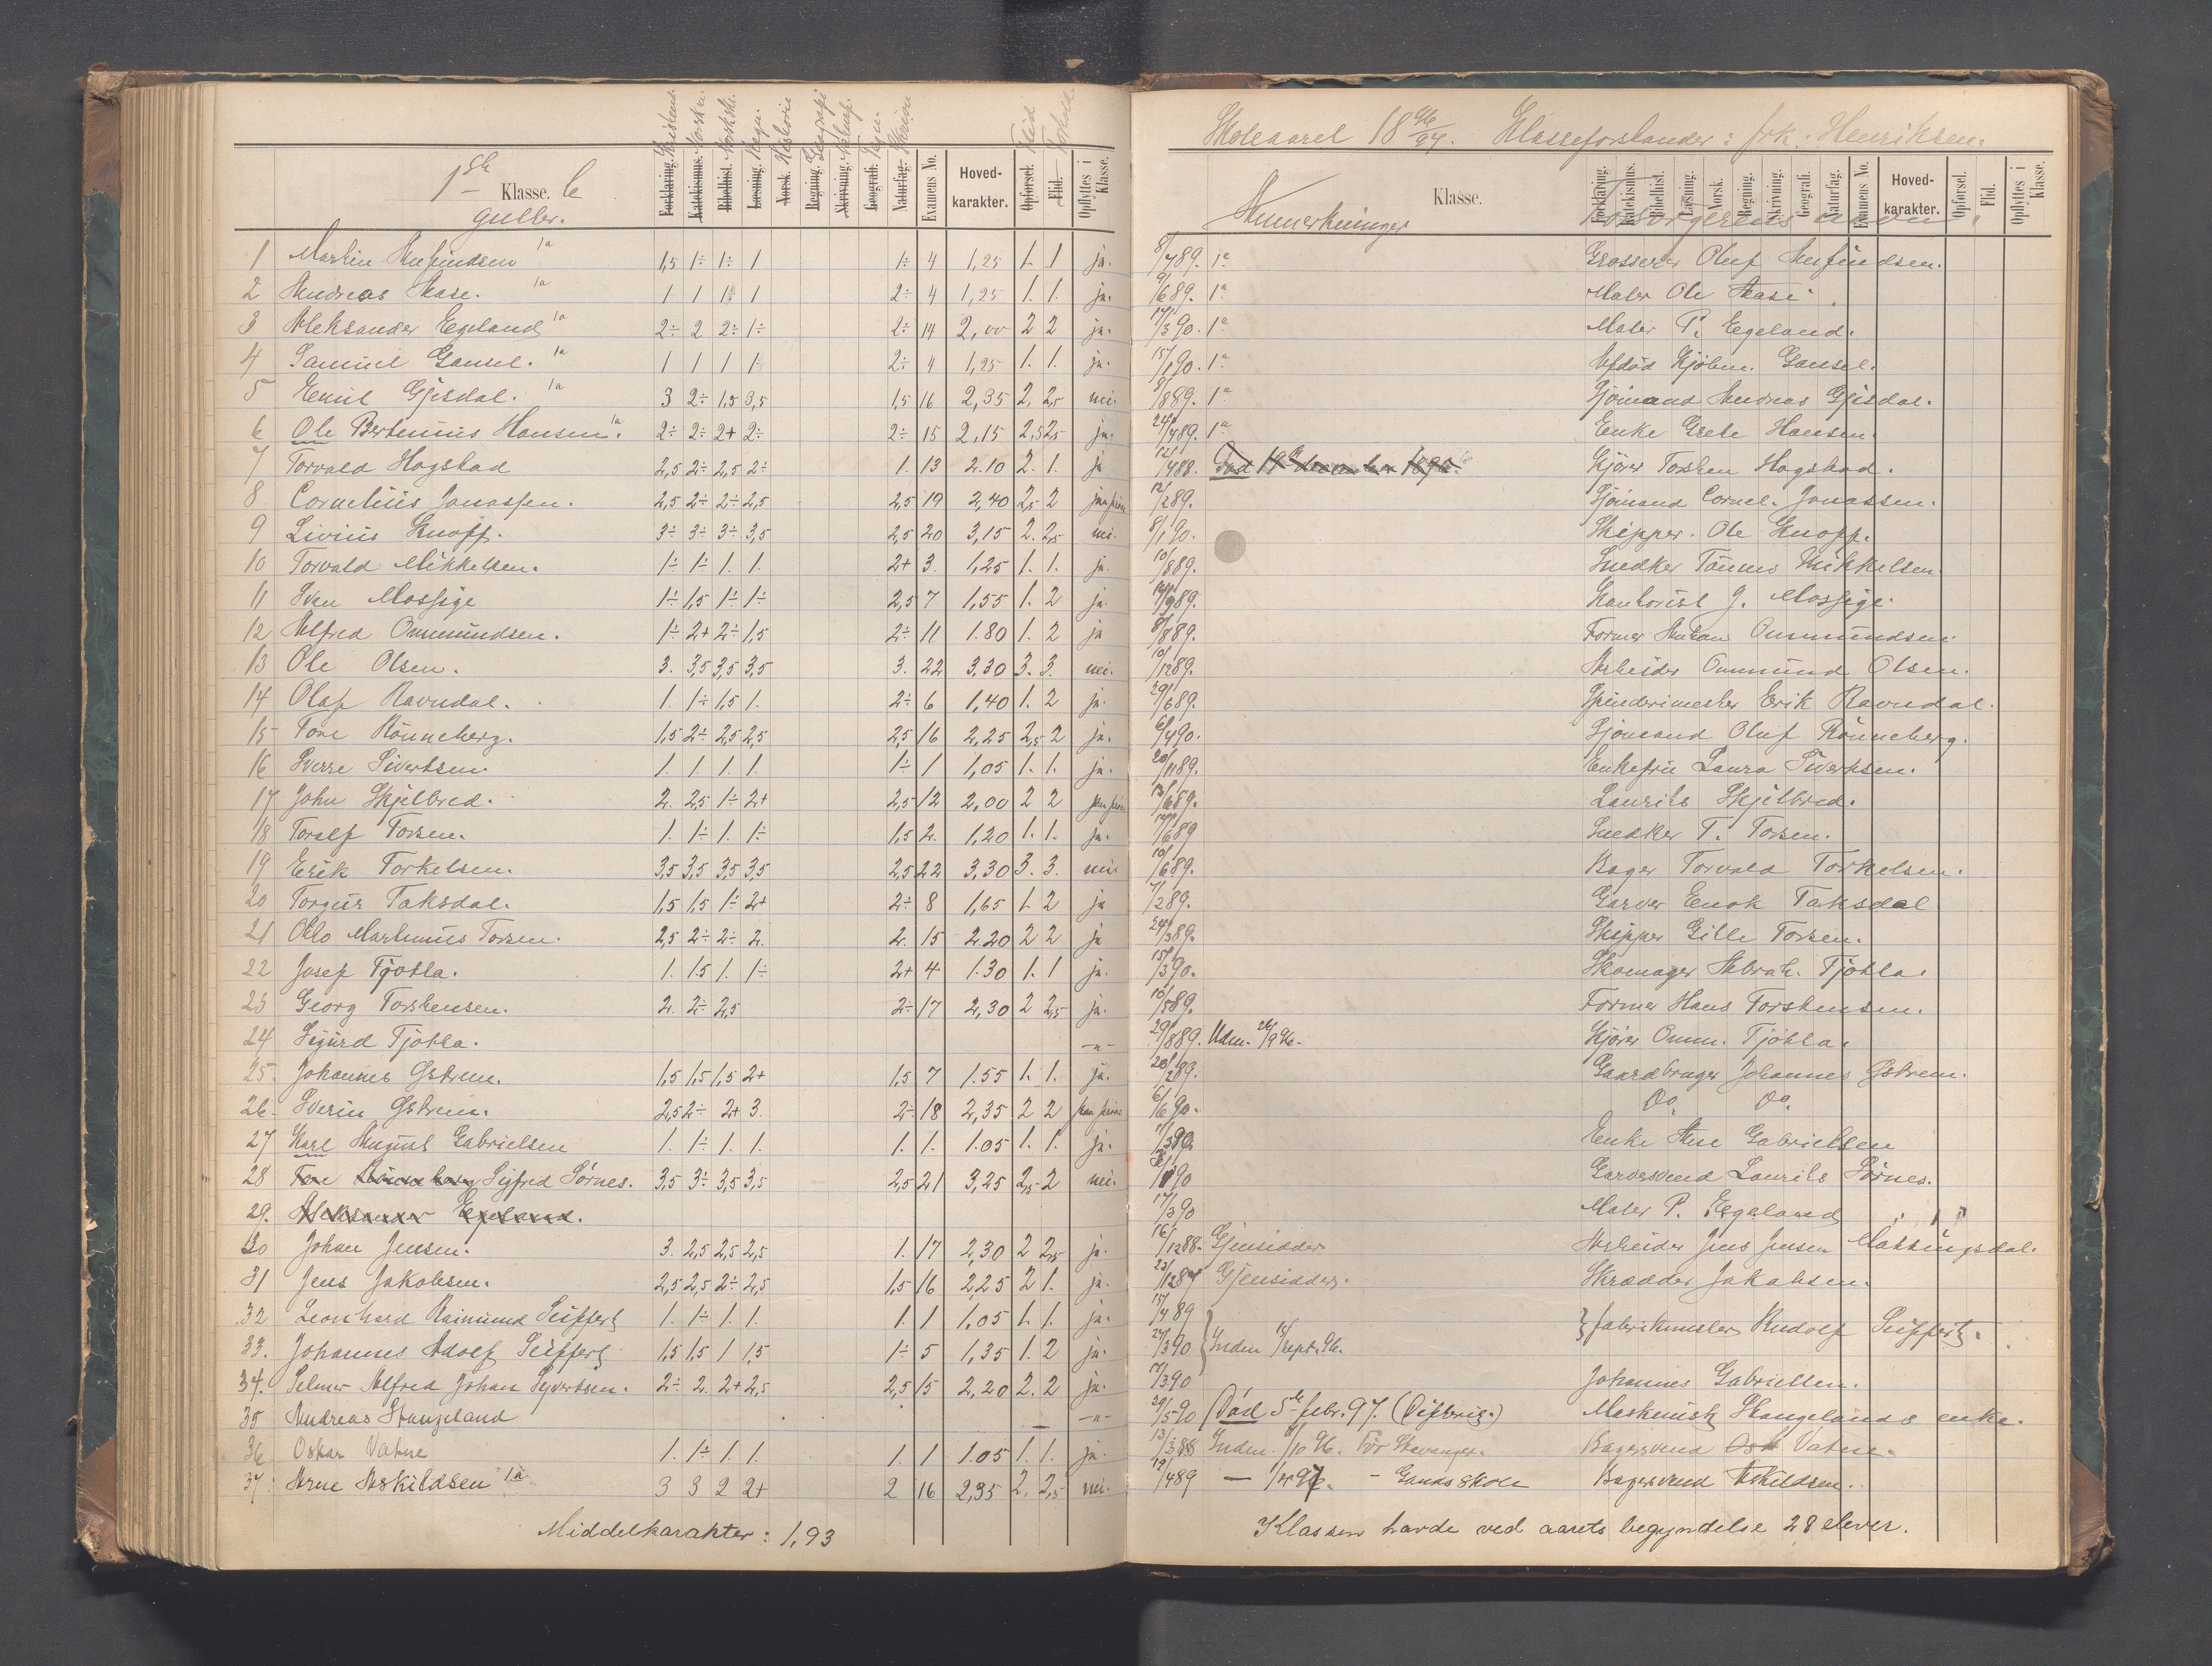 1ste Klasse. b
gutter.
Forklaring. Katekismus. Bibelhist. Læsning. Norsk. Regning. Skrivning. Geografi. Naturfag. Examens No. Hoved-karakter. Opførsel. Flid. Opflyttes i Klasse.
Historie Geografi Flid Forhold
1 Martin Anfindsen 1a 1,5 1÷ 1÷ 1 1÷ 4 1,25 1 1 ja.
2 Andreas Aase. 1a 1 1 1÷ 1 2÷ 4 1,25 1. 1. ja.
3 Aleksander Egeland 1a 2÷ 2 2÷ 1÷ 2÷ 14 2,00 2 2 ja.
4 Samuel Gausel. 1a 1 1 1 1 2÷ 4 1,25 1. 1. ja.
5 Emil Gjesdal. 1a 3 2÷ 1,5 3,5 1,5 16 2,35 2. 2,5 nei.
6 Ole Bertinius Hansen. 1a 2÷ 2÷ 2+ 2÷ 2÷ 15 2,15 2,5 2,5 ja.
7 Torvald Hogstad 2,5 2÷ 2,5 2÷ 1. 13 2.10 2. 1. ja
8 Cornelius Jonassen. 2,5 2÷ 2÷ 2,5 2,5 19 2,40 2,5 2
9 Livius Knoff. 3÷ 3÷ 3÷ 3,5 2,5 20 3,15 2. 2,5 nei.
10 Torvald Mikkelsen. 1÷ 1÷ 1. 1. 2+ 3. 1,25 1. 1. ja.
11 Sven Mossige 1÷ 1,5 1÷ 1÷ 2,5 7 1,55 1. 2 ja.
12 Alfred Ommundsen. 1÷ 2+ 2÷ 1,5 2÷ 11 1.80 1. 2 ja
13 Ole Olsen. 3. 3,5 3,5 3,5 3. 22 3,30 3. 3. nei.
14 Olaf Ravndal. 1. 1÷ 1,5 1. 2÷ 6 1,40 1. 2 ja.
15 Tore Rönneberg. 1,5 2÷ 2,5 2,5 2,5 16 2,25 2,5 2 ja.
16 Sverre Sivertsen. 1. 1. 1. 1. 1÷ 1 1,05 1. 1. ja.
17 John Skjelbred. 2. 2,5 1÷ 2+ 2,5 12 2,00 2 2
18 Toralf Torsen. 1. 1÷ 1. 1÷ 1,5 2. 1,20 1. 1. ja.
19 Erik Torkelsen. 3,5 3,5 3,5 3,5 2,5 22 3,30 3. 3. nei
20 Torger Taksdal. 1,5 1,5 1÷ 2+ 2÷ 8 1,65 1. 2 ja
21 Otto Martinius Torsen. 2,5 2÷ 2÷ 2. 2. 15 2.20 2 2 ja
22 Josef Tjøtta. 1. 1.5 1. 1÷ 2+ 4 1.30 1. 1 ja.
23 Georg Torstensen. 2. 2÷ 2,5 2÷ 17 2,30 2 2,5 ja.
24 Sigurd Tjøtta. -"-
25. Johannes Østrem. 1,5 1,5 1,5 2+ 1,5 7 1.55 1. 1. ja.
26. Sverin Østrem. 2,5 2÷ 2+ 3. 2÷ 18 2,35 2 2
27 Karl August Gabrielsen 1. 1÷ 1. 1. 1. 1. 1.05 1. 1. ja.
28 Tore Rönneberg Sigfred Sörnes. 3,5 3÷ 3,5 3,5 2,5 21 3,25 2,5 2 nei.
29. Aleksander Egeland.
30 Johan Jensen. 3. 2,5 2,5 2,5 1. 17 2,30 2 2,5 ja.
31 Jens Jakobsen. 2,5 2,5 2÷ 2,5 1,5 16 2,25 2 1. ja.
32 Leonhard Raimund Seiffert 1. 1÷ 1. 1. 1. 1 1,05 1. 1. ja.
33. Johannes Adolf Seiffert 1,5 1,5 1 1,5 1÷ 5 1,35 1. 2 ja.
34. Selmer Alfred Johan Syvertsen. 2÷ 2. 2+ 2,5 2,5 15 2,20 2. 2 ja.
35 Andreas Stangeland -"-
36 Oskar Vatne 1. 1÷ 1. 1. 1. 1 1.05 1. 1. ja.
37 Arne Askildsen 1a 3 3 2 2+ 2 16 2,35 2. 2,5 nei.
Middelkarakter: 1,93
Skoleaaret 1896/97. Klasseforstander: frk. Henriksen.
Anmerkninger Klasse. Forsørgerens navn.
Forklaring. Katekismus. Bibelhist. Læsning. Norsk. Regning. Skrivning. Geografi. Naturfag. Examens No. Hoved-karakter. Opførsel. Flid. Opflyttes i Klasse.
8/4 89. 1a Grosserer Oluf Anfindsen.
9/6 89. 1a Maler Ole Aase.
17/3 90. 1a Maler P. Egeland.
15/1 90. 1a Afdød Kjøbm. Gausel.
8/8 89. 1a Sjömand Andreas Gjesdal.
24/4 89. 1a Enke Grete Hansen.
12/4 88. Död 19de november 1896. Kjörer Torsten Hogstad.
12/2 89. Sjömand Cornel. Jonassen.
8/1 90. Skipper Ole Knoff.
10/8 89. Snedker Tönnes Mikkelsen.
9 89. Kontorist J. Mossige.
8/8 89. Former Ommundsen.
10/12 89. Arbeider Ommund Olsen.
29/6 89. Spinderimester Erik Ravndal.
6/4 90. Sjömand Oluf Rönneberg.
20/11 89. Enkefru Laura Sivertsen.
13/6 89. Laurits Skjelbred.
6 89 Snedker T. Torsen.
10/6 89. Bager Torvald Torkelsen.
7/2 89. Garver Enok Taksdal
24/3 89. Skipper Gille Torsen.
15/3 90. Skomager Abrah. Tjøtta.
10/5 89. Former Hans Torstensen.
29/8 89. Udm. 26/9 96. Kjörer Omm. Tjøtta.
20/2 89. Gaardbruger Johannes Østrem.
6/6 90. Do. Do.
3 90. Enke Ane Gabrielsen
90 Garversvend Laurits Sörnes.
17/3 90 Maler P. Egeland
16/12 88. Gjensidder Arbeider Jens Jensen Mattingsdal.
23/12 87 Gjensidder. Skrædder Jakobsen.
15/4 89 } fabrikmester Rudolf Seiffert.
27/3 90 Inden sept. 96.
17/3 90 Johannes Gabrielsen.
29/5 90 (Död 5te febr. 97. (Difterit.) Maskinist Stangelands enke.
13/3 88 Indm. /10 96. för Stavanger. Bagersvend Vatne.
19/4 89 — 97. - Gands skole Bagersvend Askildsen.
Klassen havde ved aarets begyndelse 28 elever.